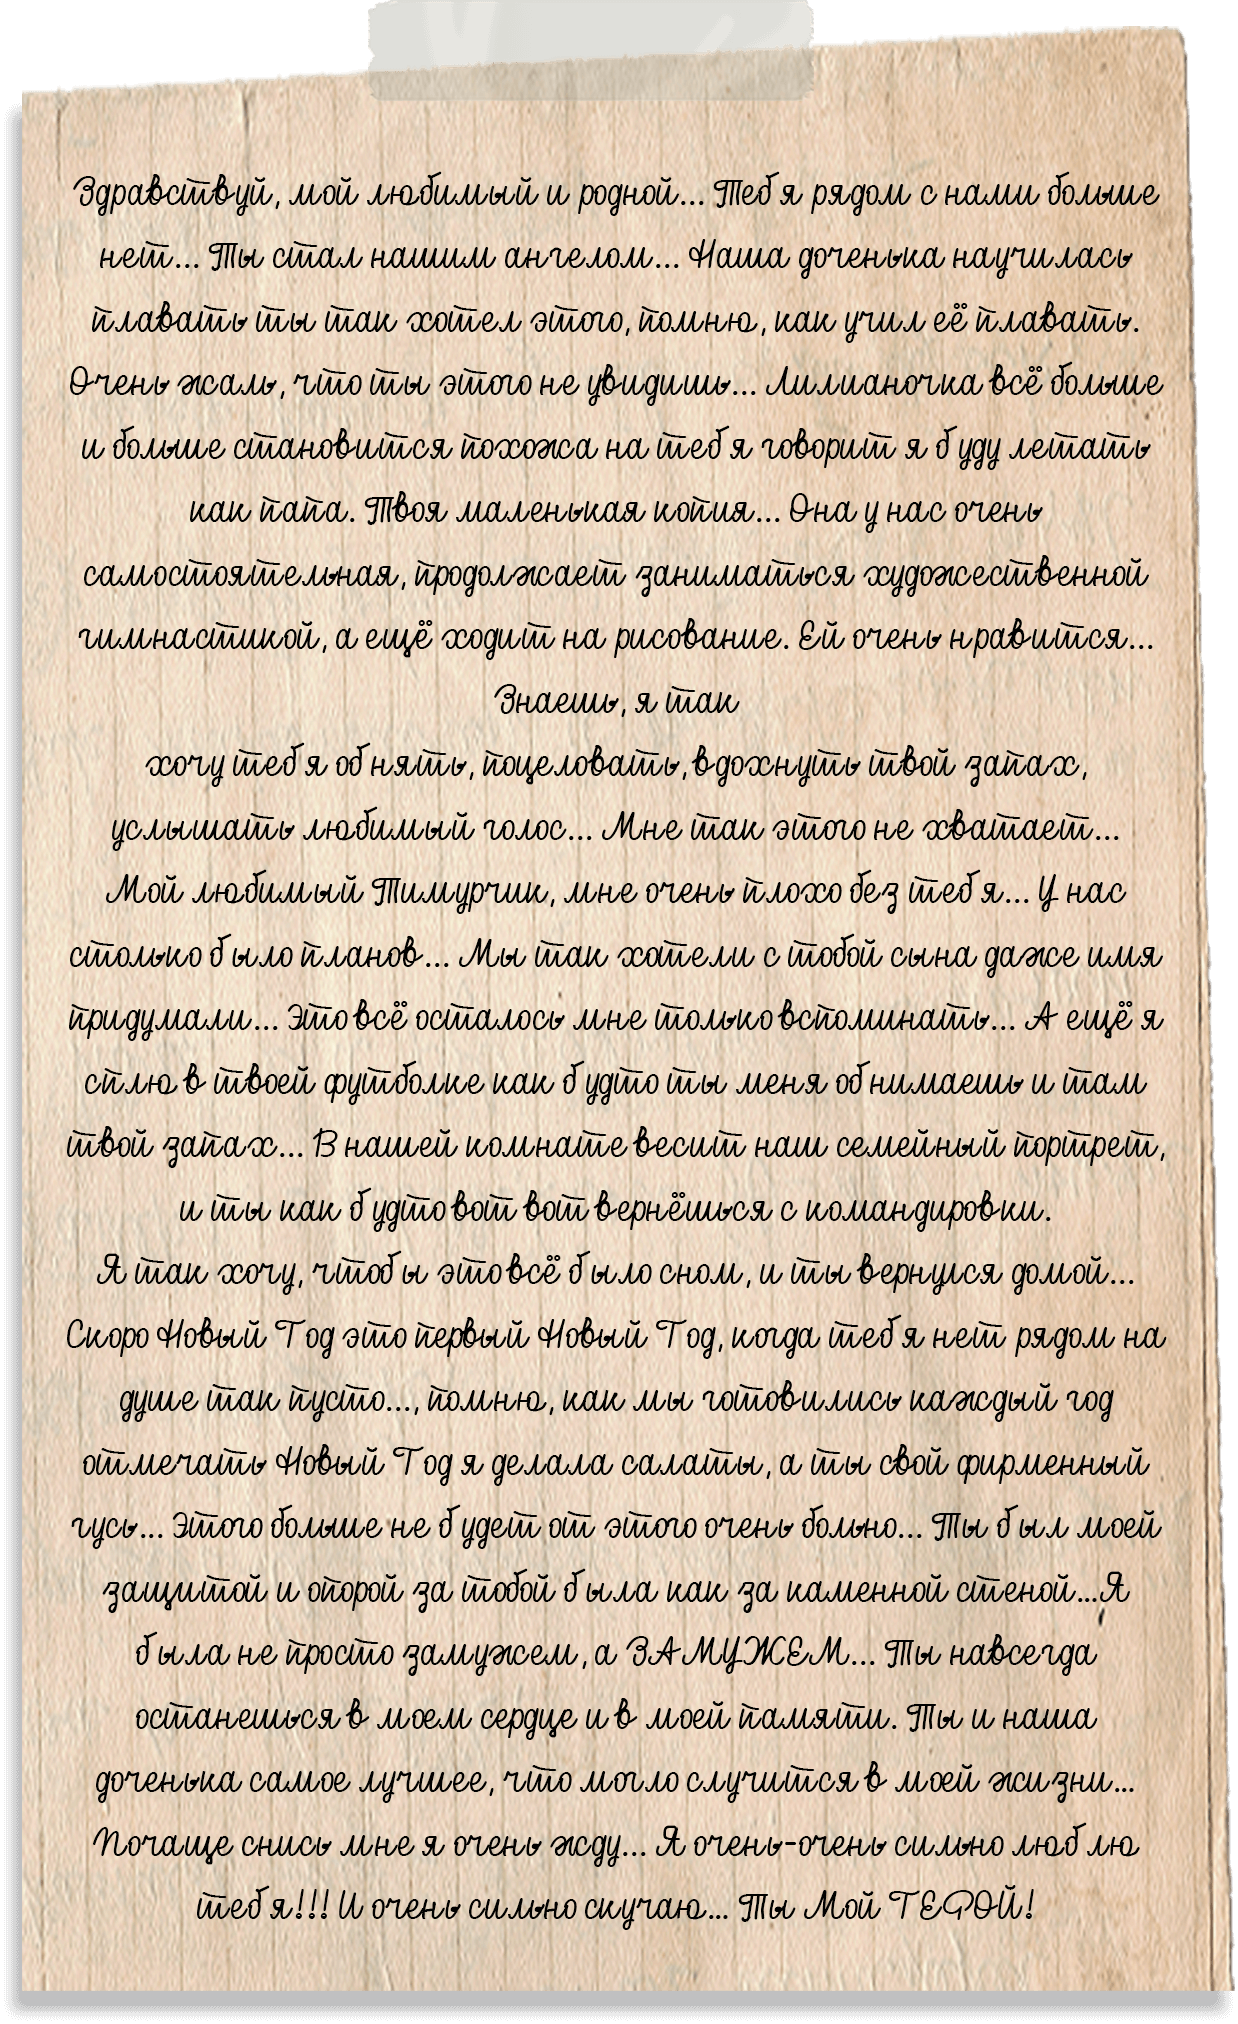 Здравствуй, мой любимый и родной... Тебя рядом с нами больше
нет... Ты стал нашим ангелом... Наша доченька научилась
плавать ты так хотел этого, помню, как учил её плавать.
Очень жаль, что ты этого не увидишь... Лилианочка всё больше
и больше становится похожа на тебя говорит я буду летать
как папа. Твоя маленькая копия... Она у нас очень
самостоятельная, продолжает заниматься художественной
гимнастикой, а ещё ходит на рисование. Ей очень нравится...
Знаешь, я так
хочу тебя обнять, поцеловать, вдохнуть твой запах,
услышать любимый голос... Мне так этого не хватает...
Мой любимый Тимурчик, мне очень плохо без тебя... У нас
столько было планов... Мы так хотели с тобой сына даже имя
придумали... Это всё осталось мне только вспоминать... А ещё я
сплю в твоей футболке как будто ты меня обнимаешь и там
твой запах... В нашей комнате весит наш семейный портрет,
и ты как будто вот вот вернёшься с командировки.
Я так хочу, чтобы это всё было сном, и ты вернулся домой...
Скоро Новый Год это первый Новый Год, когда тебя нет рядом на
душе так пусто..., помню, как мы готовились каждый год
отмечать Новый Год я делала салаты, а ты свой фирменный
гусь... Этого больше не будет от этого очень больно... Ты был моей
защитой и опорой за тобой была как за каменной стеной...Я
была не просто замужем, а ЗАМУЖЕМ... Ты навсегда
останешься в моем сердце и в моей памяти. Ты и наша
доченька самое лучшее, что могло случится в моей жизни...
Почаще снись мне я очень жду... Я очень-очень сильно люблю
тебя!!! И очень сильно скучаю... Ты Мой ГЕРОЙ!